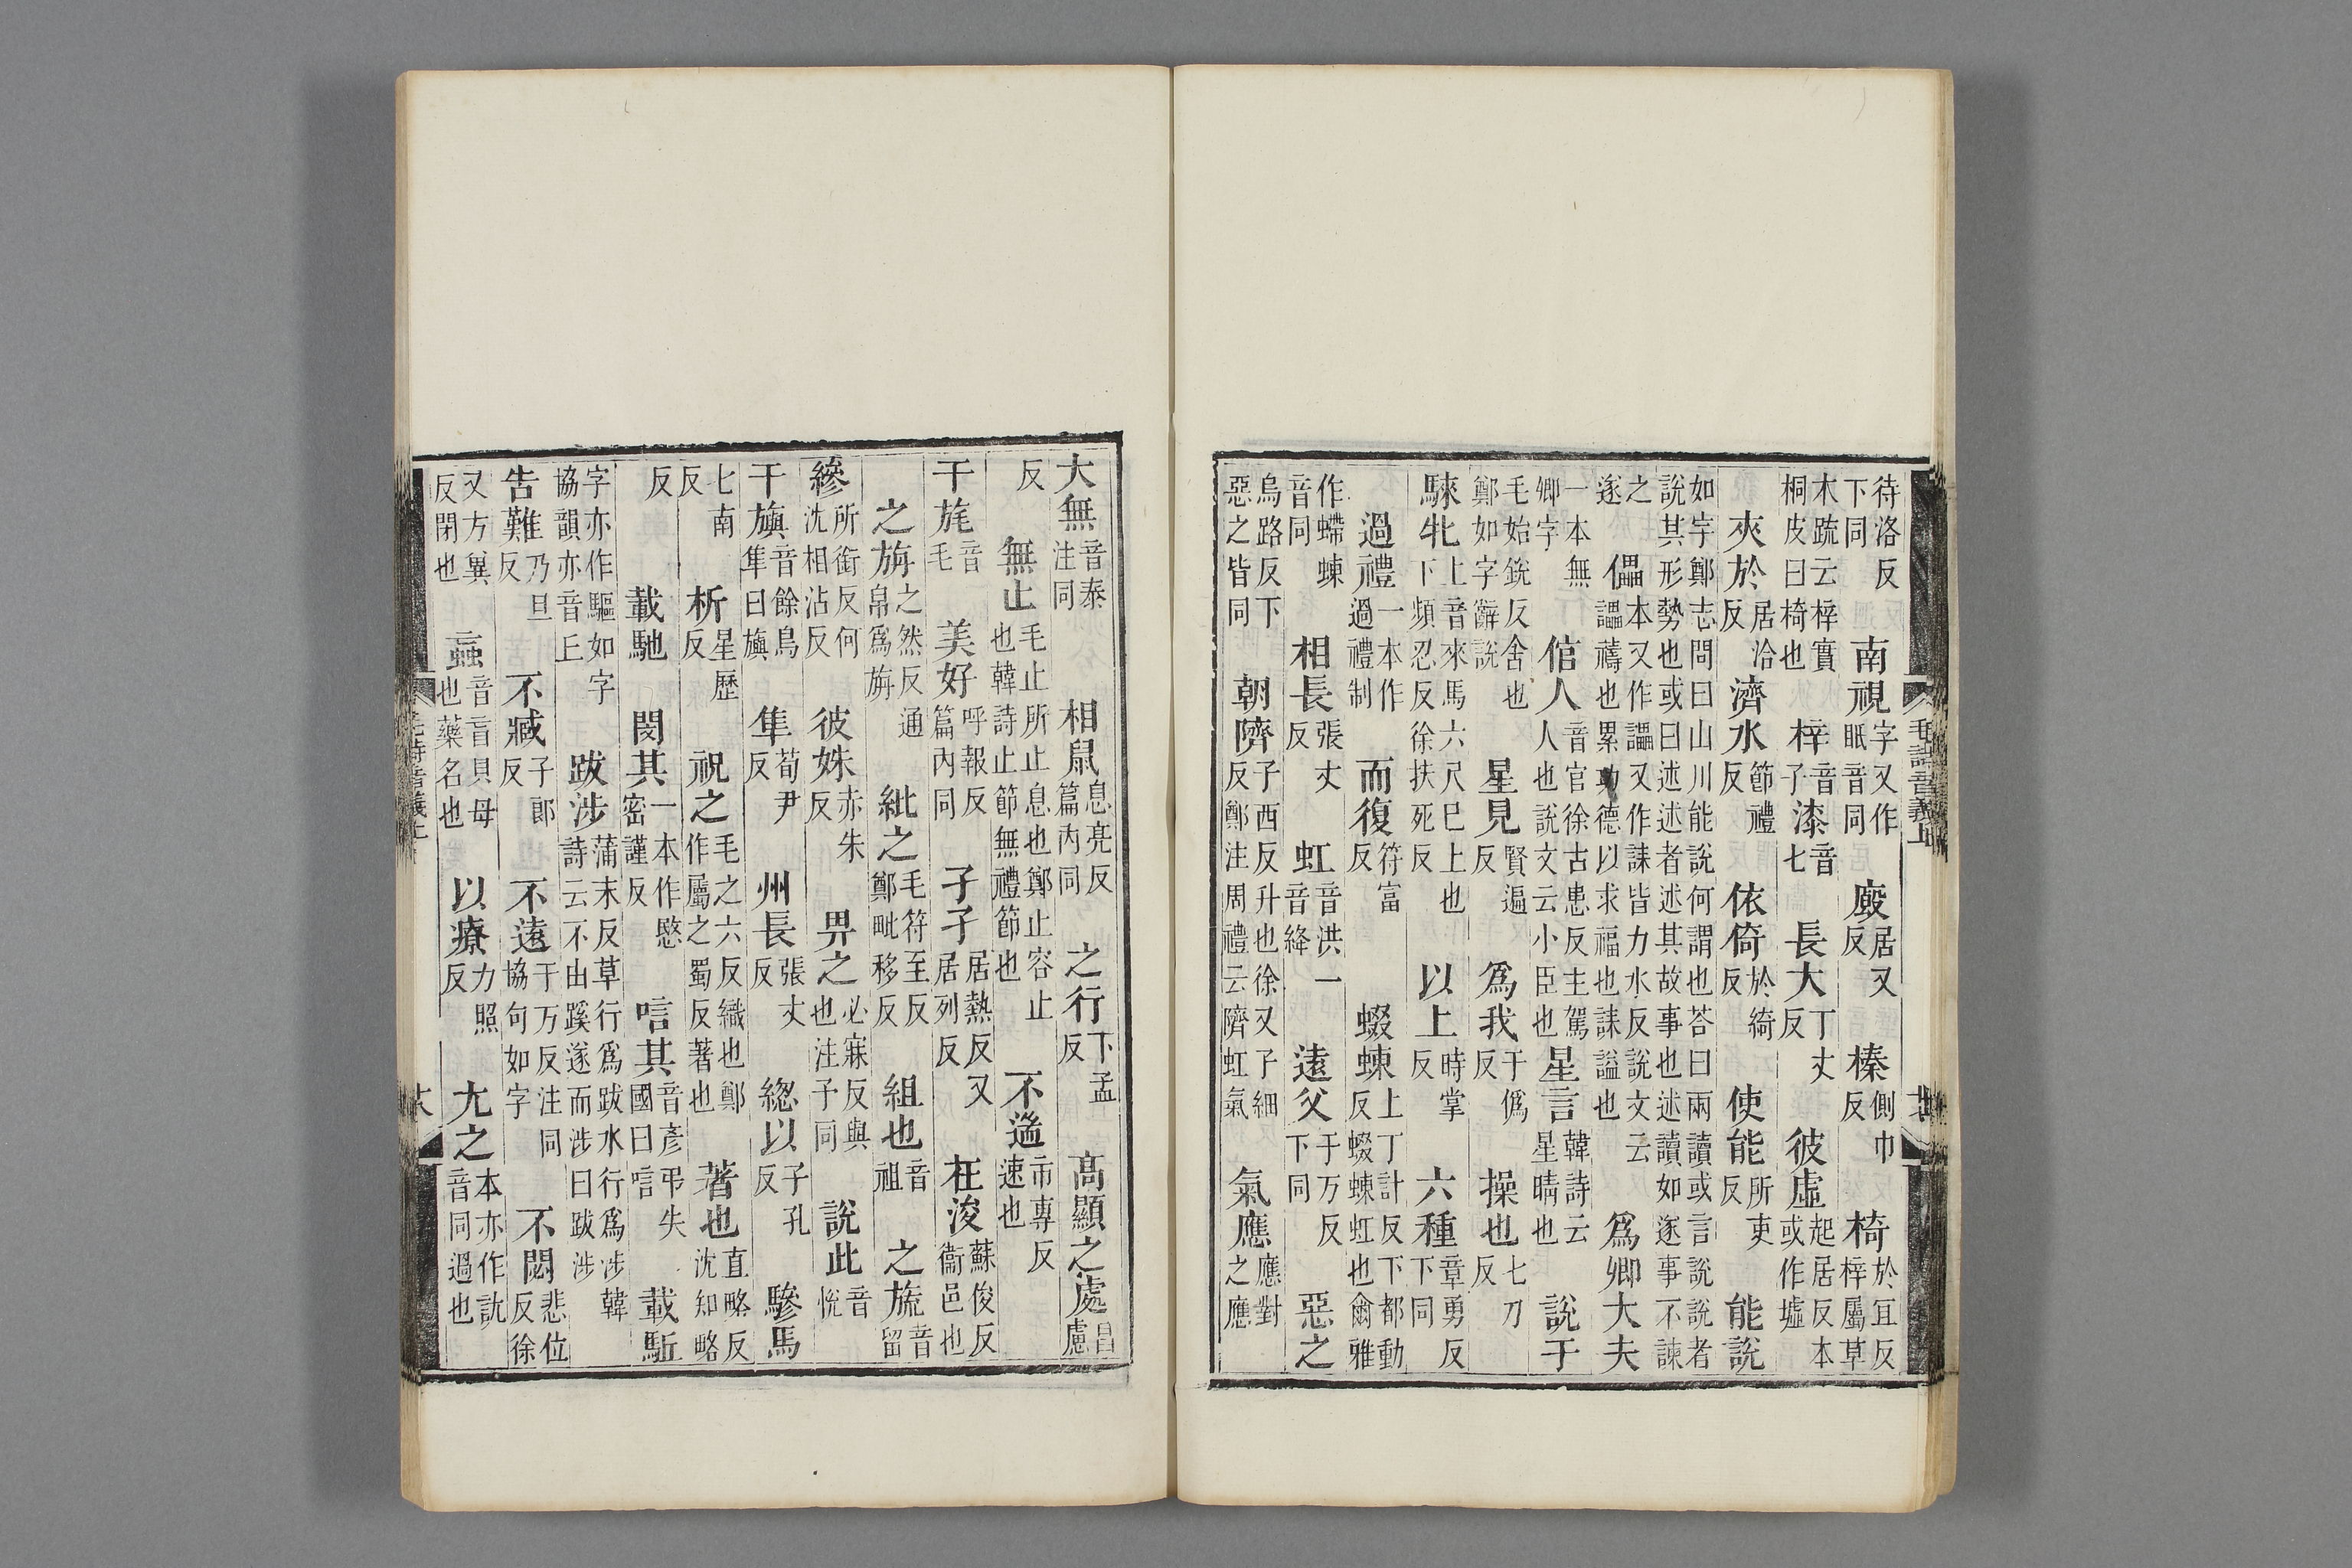 待洛反下同南視字又作眂音同廄居又反榛側巾反椅於宜反梓屬草
木疏云梓實桐皮曰椅也梓音子漆音七長大丁丈反彼虛起居反本或作墟
夾於居洽反濟水節禮反依倚於綺反使能所吏反能說
如字鄭志問曰山川能說何謂也荅曰兩讀或言說說者說其形勢也或曰述述者述其故事也述讀如遂事不諫
之遂儡本又作讄又作誄皆力水反說文云讄禱也累功德以求福也誄謚也爲卿大夫
一本無卿字倌人音官徐古患反主駕人也說文云小臣也星言韓詩云星晴也說于
毛始銳反舍也鄭如字辭說星見賢遍反爲我于僞反操也七刀反
騋牝上音來馬六尺巳上也下頻忍反徐扶死反以上時掌反六種章勇反下同
過禮一本作過禮制而復符富反蝃蝀上丁計反下都動反蝃蝀虹也爾雅
作螮蝀音同相長張丈反虹音洪一音絳遠父于万反下同惡之
烏路反下惡之皆同朝隮子西反升也徐又子細反鄭注周禮云隮虹氣氣應應對之應
毛詩音義上
大無音泰注同相鼠息亮反篇內同之行下孟反高顯之處昌慮
反無止毛止所止息也鄭止容止也韓詩止節無禮節也不遄市專反速也
干旄音毛美好呼報反篇內同孑孑居熱反又居列反在浚蘇俊反衞邑也
之旃之然反通帛爲旃紕之毛符至反鄭毗移反組也音祖之旒音留
縿所銜反何沈相沾反彼姝赤朱反畀之必寐反與也注予同說此音悅
干旟音餘鳥隼曰旟隼荀尹反州長張丈反緫以子孔反驂馬
七南反析星歷反祝之毛之六反織也鄭作屬之蜀反著也著也直略反沈知略
反載馳閔其一本作愍密謹反唁其音彥弔失國曰唁載馸
字亦作驅如字協韻亦音上跋涉蒲末反草行爲跋水行爲涉韓詩云不由蹊遂而涉曰跋涉
告難乃旦反不臧子郎反不遠于万反注同協句如字不閟悲位反徐
又方冀反閉也蝱音盲貝母也藥名也以療力照反尤之本亦作訧音同過也
毛詩音義上